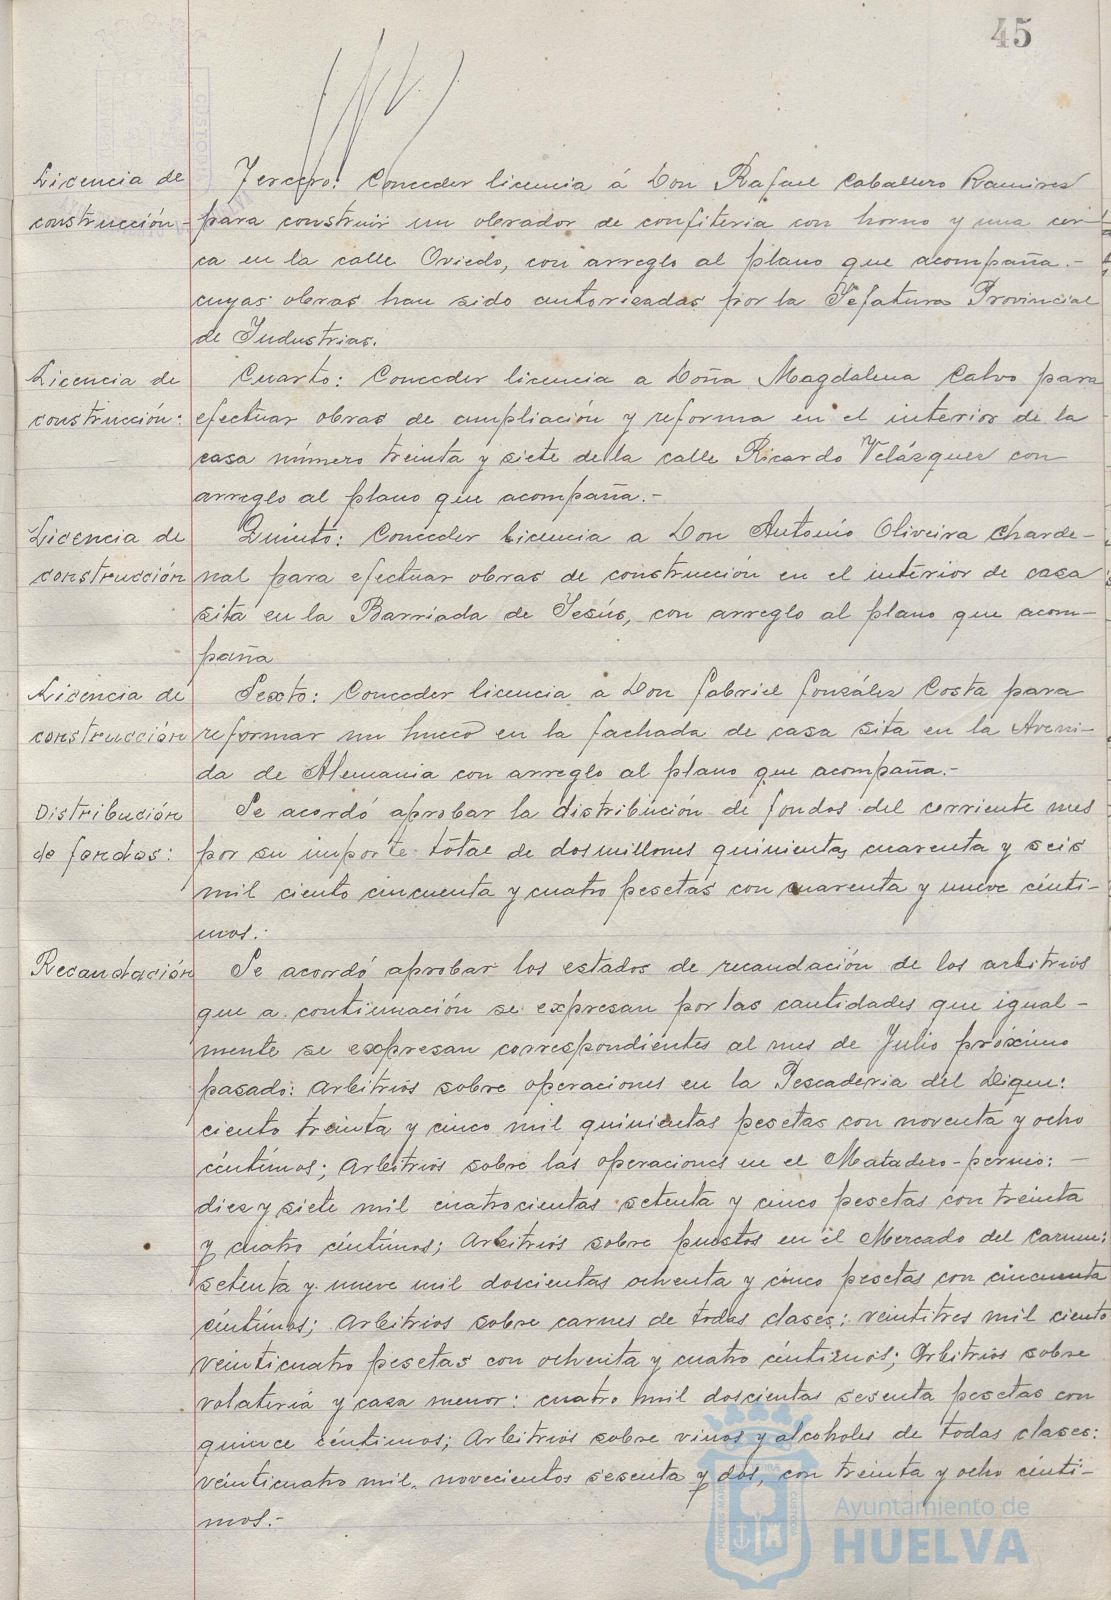 45
Licencia de
construcción.-
Tercero: Conceder licencia á Don Rafael Caballero Ramirez
para construir un obrador de confiteria con horno y una cer-
ca en la calle Oviedo, con arreglo al plano que acompaña.-
cuyas obras han sido autorizadas por la Jefatura Provincial
de Industrias.
Licencia de
construcción:
Cuarto: Conceder licencia a Doña Magdalena Calvo para
efectuar obras de ampliación y reforma en el interior de la
casa número treinta y siete de la calle Ricardo Velázquez con
arreglo al plano que acompaña.-
Licencia de
construcción
Quinto: Conceder licencia a Don Antonio Oliveira Charde-
nal para efectuar obras de construcción en el interior de casa
sita en la Barriada de Jesús, con arreglo al plano que acom-
paña
Licencia de
construcción
Sexto: Conceder licencia a Don Gabriel González Costa para
reformar un hueco en la fachada de casa sita en la Aveni-
da de Alemania con arreglo al plano que acompaña.-
Distribución
de fondos:
Se acordó aprobar la distribución de fondos del corriente mes
por su importe total de dos millones quinientas cuarenta y seis
mil ciento cincuenta y cuatro pesetas con cuarenta y nueve cénti-
mos.-
Recaudación
Se acordó aprobar los estados de recaudación de los arbitrios
que a continuación se expresan por las cantidades que igual-
mente se expresan correspondientes al mes de Julio próximo
pasado: Arbitrios sobre operaciones en la Pescaderia del Dique:
ciento treinta y cinco mil quinientas pesetas con noventa y ocho
céntimos; Arbitrios sobre las operaciones en el Matadero-permio:-
diez y siete mil cuatrocientas setenta y cinco pesetas con treinta
y cuatro céntimos; Arbitrios sobre puestos en el Mercado del Carmen:
setenta y nueve mil doscientas ochenta y cinco pesetas con cincuenta
céntimos; Arbitrios sobre carnes de todas clases: veintitres mil ciento
veinticuatro pesetas con ochenta y cuatro céntimos; Arbitrios sobre
volateria y caza menor: cuatro mil doscientas sesenta pesetas con
quince céntimos; Arbitrios sobre vinos y alcoholes de todas clases:
veinticuatro mil novecientos sesenta y dos, con treinta y ocho cénti-
mos.-
Ayuntamiento de
HUELVA